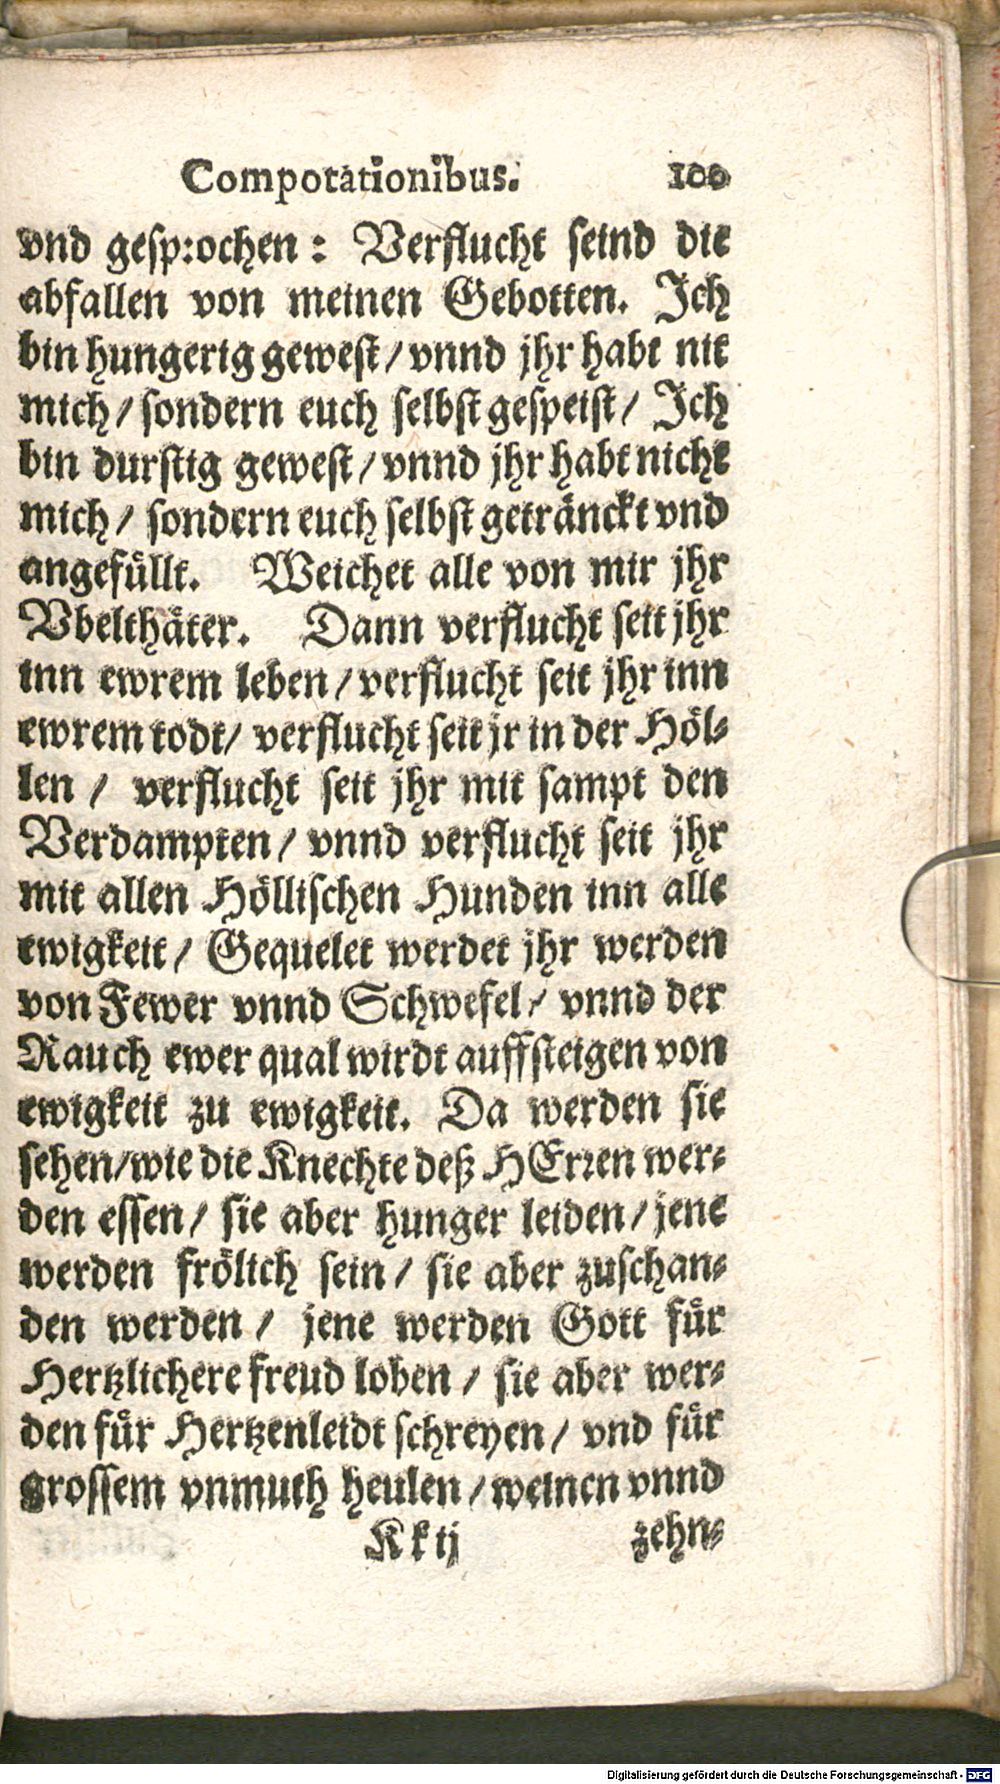 Compotationibus. 100
vnd gesprochen: Verflucht seind die
abfallen von meinen Gebotten. Ich
bin hungerig gewest/ vnnd jhr habt nit
mich/ sondern euch selbst gespeist/ Ich
bin durstig gewest/ vnnd jhr habt nicht
mich/ sondern euch selbst getränckt vnd
angefüllt. Weichet alle von mir jhr
Vbelthäter. Dann verflucht seit jhr
inn ewrem leben/ verflucht seit jhr inn
ewrem todt/ verflucht seit jr in der Höl-
len/ verflucht seit jhr mit sampt den
Verdampten/ vnnd verflucht seit jhr
mit allen Höllischen Hunden inn alle
ewigkeit/ Gequelet werdet jhr werden
von Fewer vnnd Schwefel/ vnnd der
Rauch ewer qual wirdt auffsteigen von
ewigkeit zu ewigkeit. Da werden sie
sehen/wie die Knechte deß HErren wer-
den essen/ sie aber hunger leiden/ jene
werden frölich sein/ sie aber zuschan-
den werden/ jene werden Gott für
Hertzlichere freud loben/ sie aber wer-
den für Hertzenleidt schreyen/ vnd für
grossem vnmuth heulen/ weinen vnnd
Kk ij zehn-
Digitalisierung gefördert durch die Deutsche Forschungsgemeinschaft - DFG